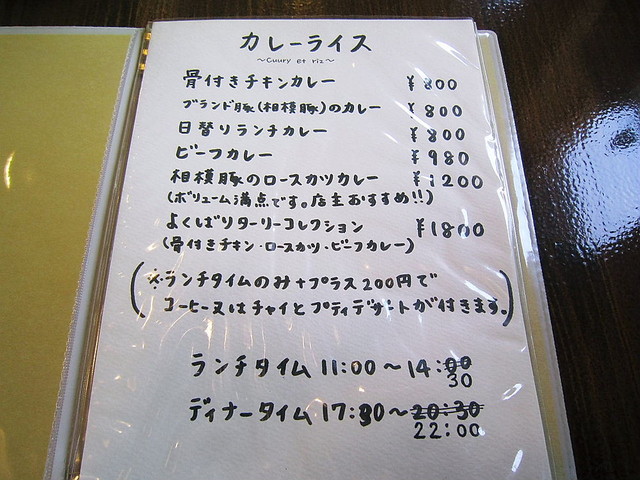 カレーライス
～Cuury et riz～
骨付きチキンカレー ¥800
ブランド豚(相模豚)のカレー ¥800
日替りランチカレー ¥800
ビーフカレー ¥980
相模豚のロースカツカレー ¥1200
(ボリューム満点です。店主おすすめ!!)
よくばりターリーコレクション ¥1800
(骨付きチキン・ロースカツ・ビーフカレー)
(※ランチタイムのみ+プラス200円で
コーヒー又はチャイとプティデザートが付きます。)
ランチタイム 11:00～14:00
30
ディナータイム 17:30～20:30
22:00